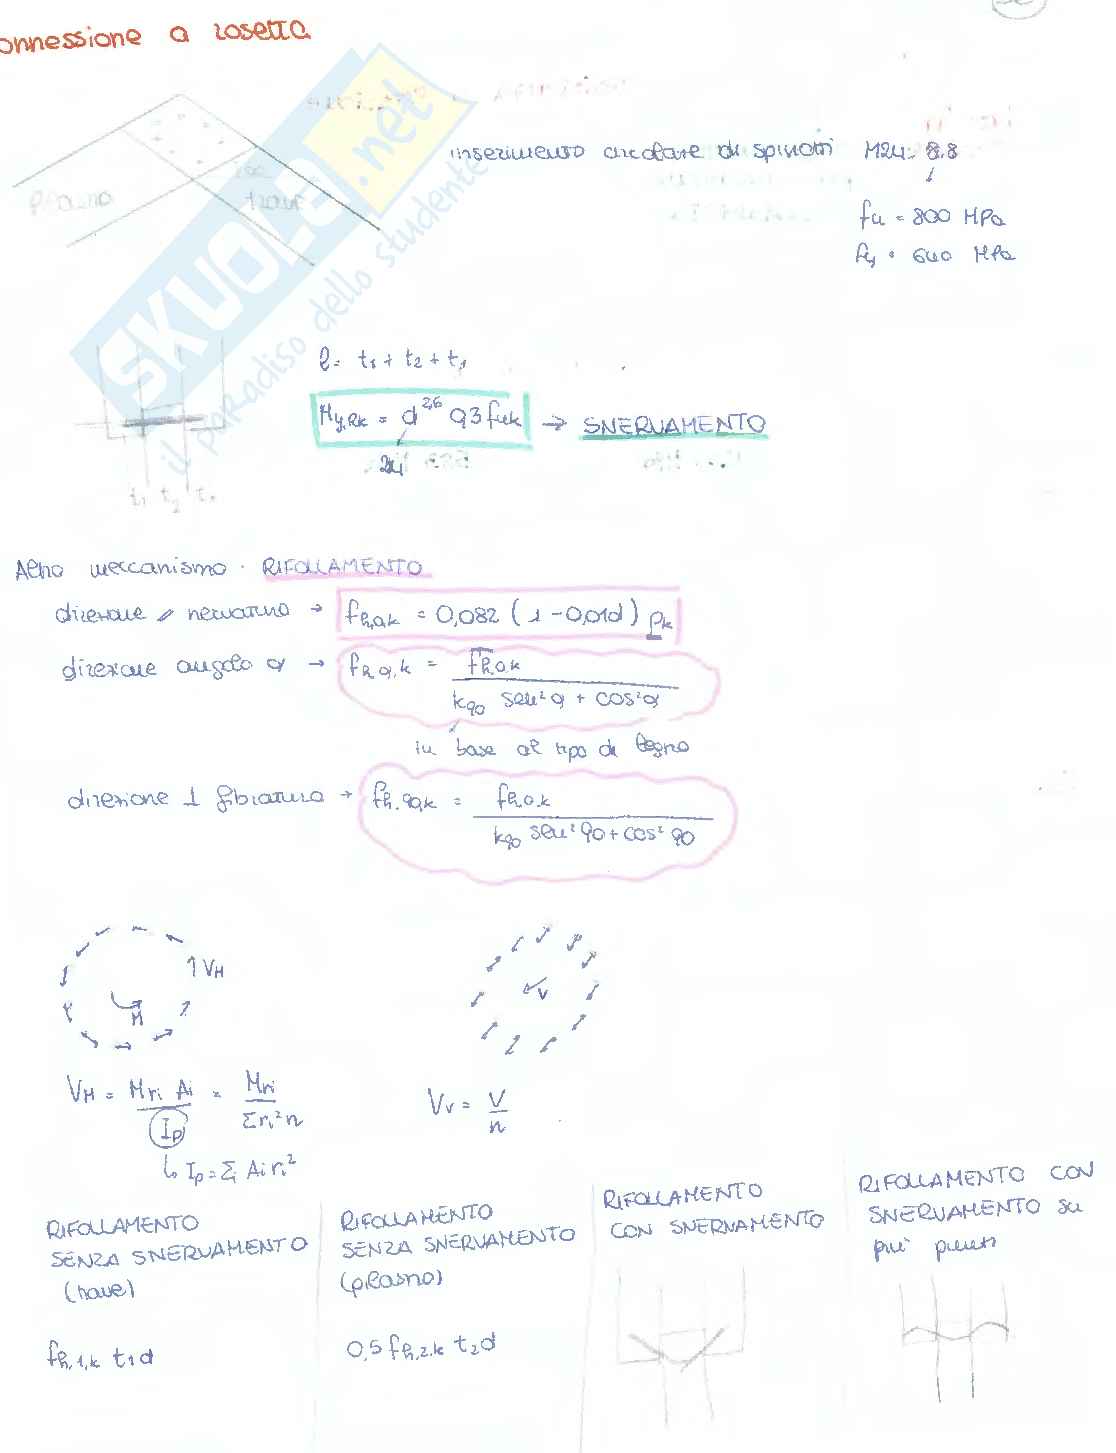 onnessione a rosetta
inserimento circolare di spinotti M24 - 8.8
fu = 800 MPa
fy = 640 MPa
pilastro
trave
SKUOLA.net
il paradiso dello studente
l = t1 + t2 + t1
My,Rk = d^2,6 0,3 fuk → SNERVAMENTO
24
t1 t2 t1
Altro meccanismo · RIFOLLAMENTO
direzione // nervatura → fh,0,k = 0,082 (1 - 0,01d) ρk
direzione angolo α → fh,α,k = fh,0,k / k90 sen²α + cos²α
in base al tipo di legno
direzione ⊥ fibratura → fh,90,k = fh,0,k / k90 sen²90 + cos²90
VM
M
V
VM = M ri Ai / Ip = M ri / Σ ri² n
Vv = V / n
↳ Ip = Σi Ai ri²
RIFOLLAMENTO
SENZA SNERVAMENTO
(trave)
fh,1,k t1 d
RIFOLLAMENTO
SENZA SNERVAMENTO
(pilastro)
0,5 fh,2,k t2 d
RIFOLLAMENTO
CON SNERVAMENTO
RIFOLLAMENTO CON
SNERVAMENTO su
più punti